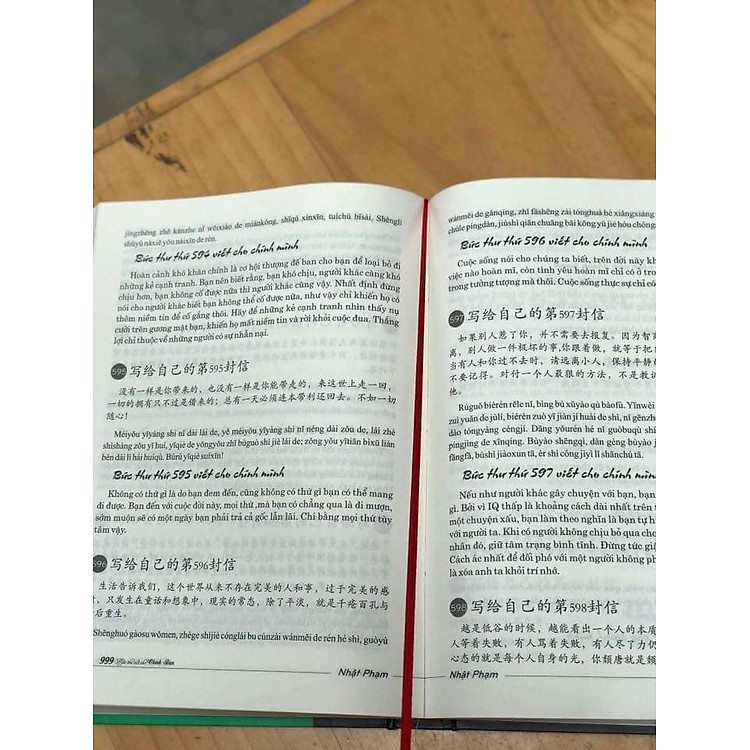 jìngzhēng zhě kànzhe nǐ wéixiào de miànkǒng, shīqù xìnxīn, tuìchū bǐsài, Shènglì
shǔyú nàxiē yǒu nàixīn de rén.
Bức thư thứ 594 viết cho chính mình
Hoàn cảnh khó khăn chính là cơ hội thượng đế ban cho bạn để loại bỏ đi
những kẻ cạnh tranh. Bạn nên biết rằng, bạn khó chịu, người khác càng khó
chịu hơn, bạn không cố được nữa thì người khác cũng vậy. Nhất định đừng
nói cho người khác biết bạn không thể cố được nữa, như vậy chỉ khiến họ có
thêm niềm tin để cố gắng thôi. Hãy để những kẻ cạnh tranh nhìn thấy nụ
cười trên gương mặt bạn, khiến họ mất niềm tin và rời khỏi cuộc đua. Thắng
lợi chỉ thuộc về những người có sự nhẫn nại.
595 写给自己的第595封信
没有一样是你带来的，也没有一样是你能带走的，来这世上走一回，
一切的拥有只不过是借来的；总有一天必须连本带利还回去。不如一切
随心！
Méiyǒu yīyàng shì nǐ dài lái de, yě méiyǒu yīyàng shì nǐ néng dài zǒu de, lái zhè
shìshàng zǒu yī huí, yīqiè de yǒngyǒu zhǐ bùguò shì jiè lái de; zǒng yǒu yītiān bìxū lián
běn dài lì hái huíqù. Bùrú yīqiè suíxīn!
Bức thư thứ 595 viết cho chính mình
Không có thứ gì là do bạn đem đến, cũng không có thứ gì bạn có thể mang
đi được. Bạn đến với cuộc đời này, mọi thứ mà bạn có chẳng qua là đi mượn,
sớm muộn sẽ có một ngày bạn phải trả cả gốc lẫn lãi. Chi bằng mọi thứ tùy
tâm vậy.
596 写给自己的第596封信
生活告诉我们，这个世界从来不存在完美的人和事，过于完美的感
，只发生在童话和想象中，现实的常态，除了平淡，就是千疮百孔与
后重生。
Shēnghuó gàosu wǒmen, zhège shìjiè cónglái bu cúnzài wánměi de rén hé shì, guòyú
999
Nhật Phạm
wánměi de gǎnqíng, zhǐ fāshēng zài tónghuà hé xiǎngxiàng
chúle píngdàn, jiùshì qiān chuāng bǎi kǒng yǔ jié hòu chóng
Bức thư thứ 596 viết cho chính mình
Cuộc sống nói cho chúng ta biết, trên đời này kh
việc nào hoàn mĩ, còn tình yêu hoàn mĩ chỉ có ở tro
trong tưởng tượng mà thôi. Cuộc sống thực sự chỉ có
597 写给自己的第597封信
如果别人惹了你，并不需要去报复。因为智商
离，别人做一件极坏的事，你跟着做，就等于把自
当有人和你过不去时，请远离小人，保持平静的
不要记得。对付一个人最狠的方法，不是教训
他。
Rúguǒ biérén rěle nǐ, bìng bù xūyào qù bàofù. Yīnwèi
zuì yuǎn de jùlí, biérén zuò yī jiàn jí huài de shì, nǐ gēnzhe
dào tóngyàng céngjí. Dāng yǒurén hé nǐ guòbuqù shí
píngjìng de xīnqíng. Bùyào shēngqì, dàn gèng bùyào j
fāngfǎ, bùshì jiàoxun tā, ér shì cóng jìyì lǐ shānchú tā.
Bức thư thứ 597 viết cho chính mình
Nếu như người khác gây chuyện với bạn, bạn
gì. Bởi vì IQ thấp là khoảng cách dài nhất trên t
một chuyện xấu, bạn làm theo nghĩa là bạn tự h
với người ta. Khi có người không chịu bỏ qua cho
nhân đó, giữ tâm trạng bình tĩnh. Đừng tức giậ
Cách ác nhất để đối phó với một người không ph
là xóa anh ta khỏi trí nhớ.
598 写给自己的第598封信
越是低谷的时候，越能看出一个人的本质
人等着失败，有人骂着失败，有人尽了力仍
心态的就是每个人自身的光，你颓唐就是颓
Nhật Phạm